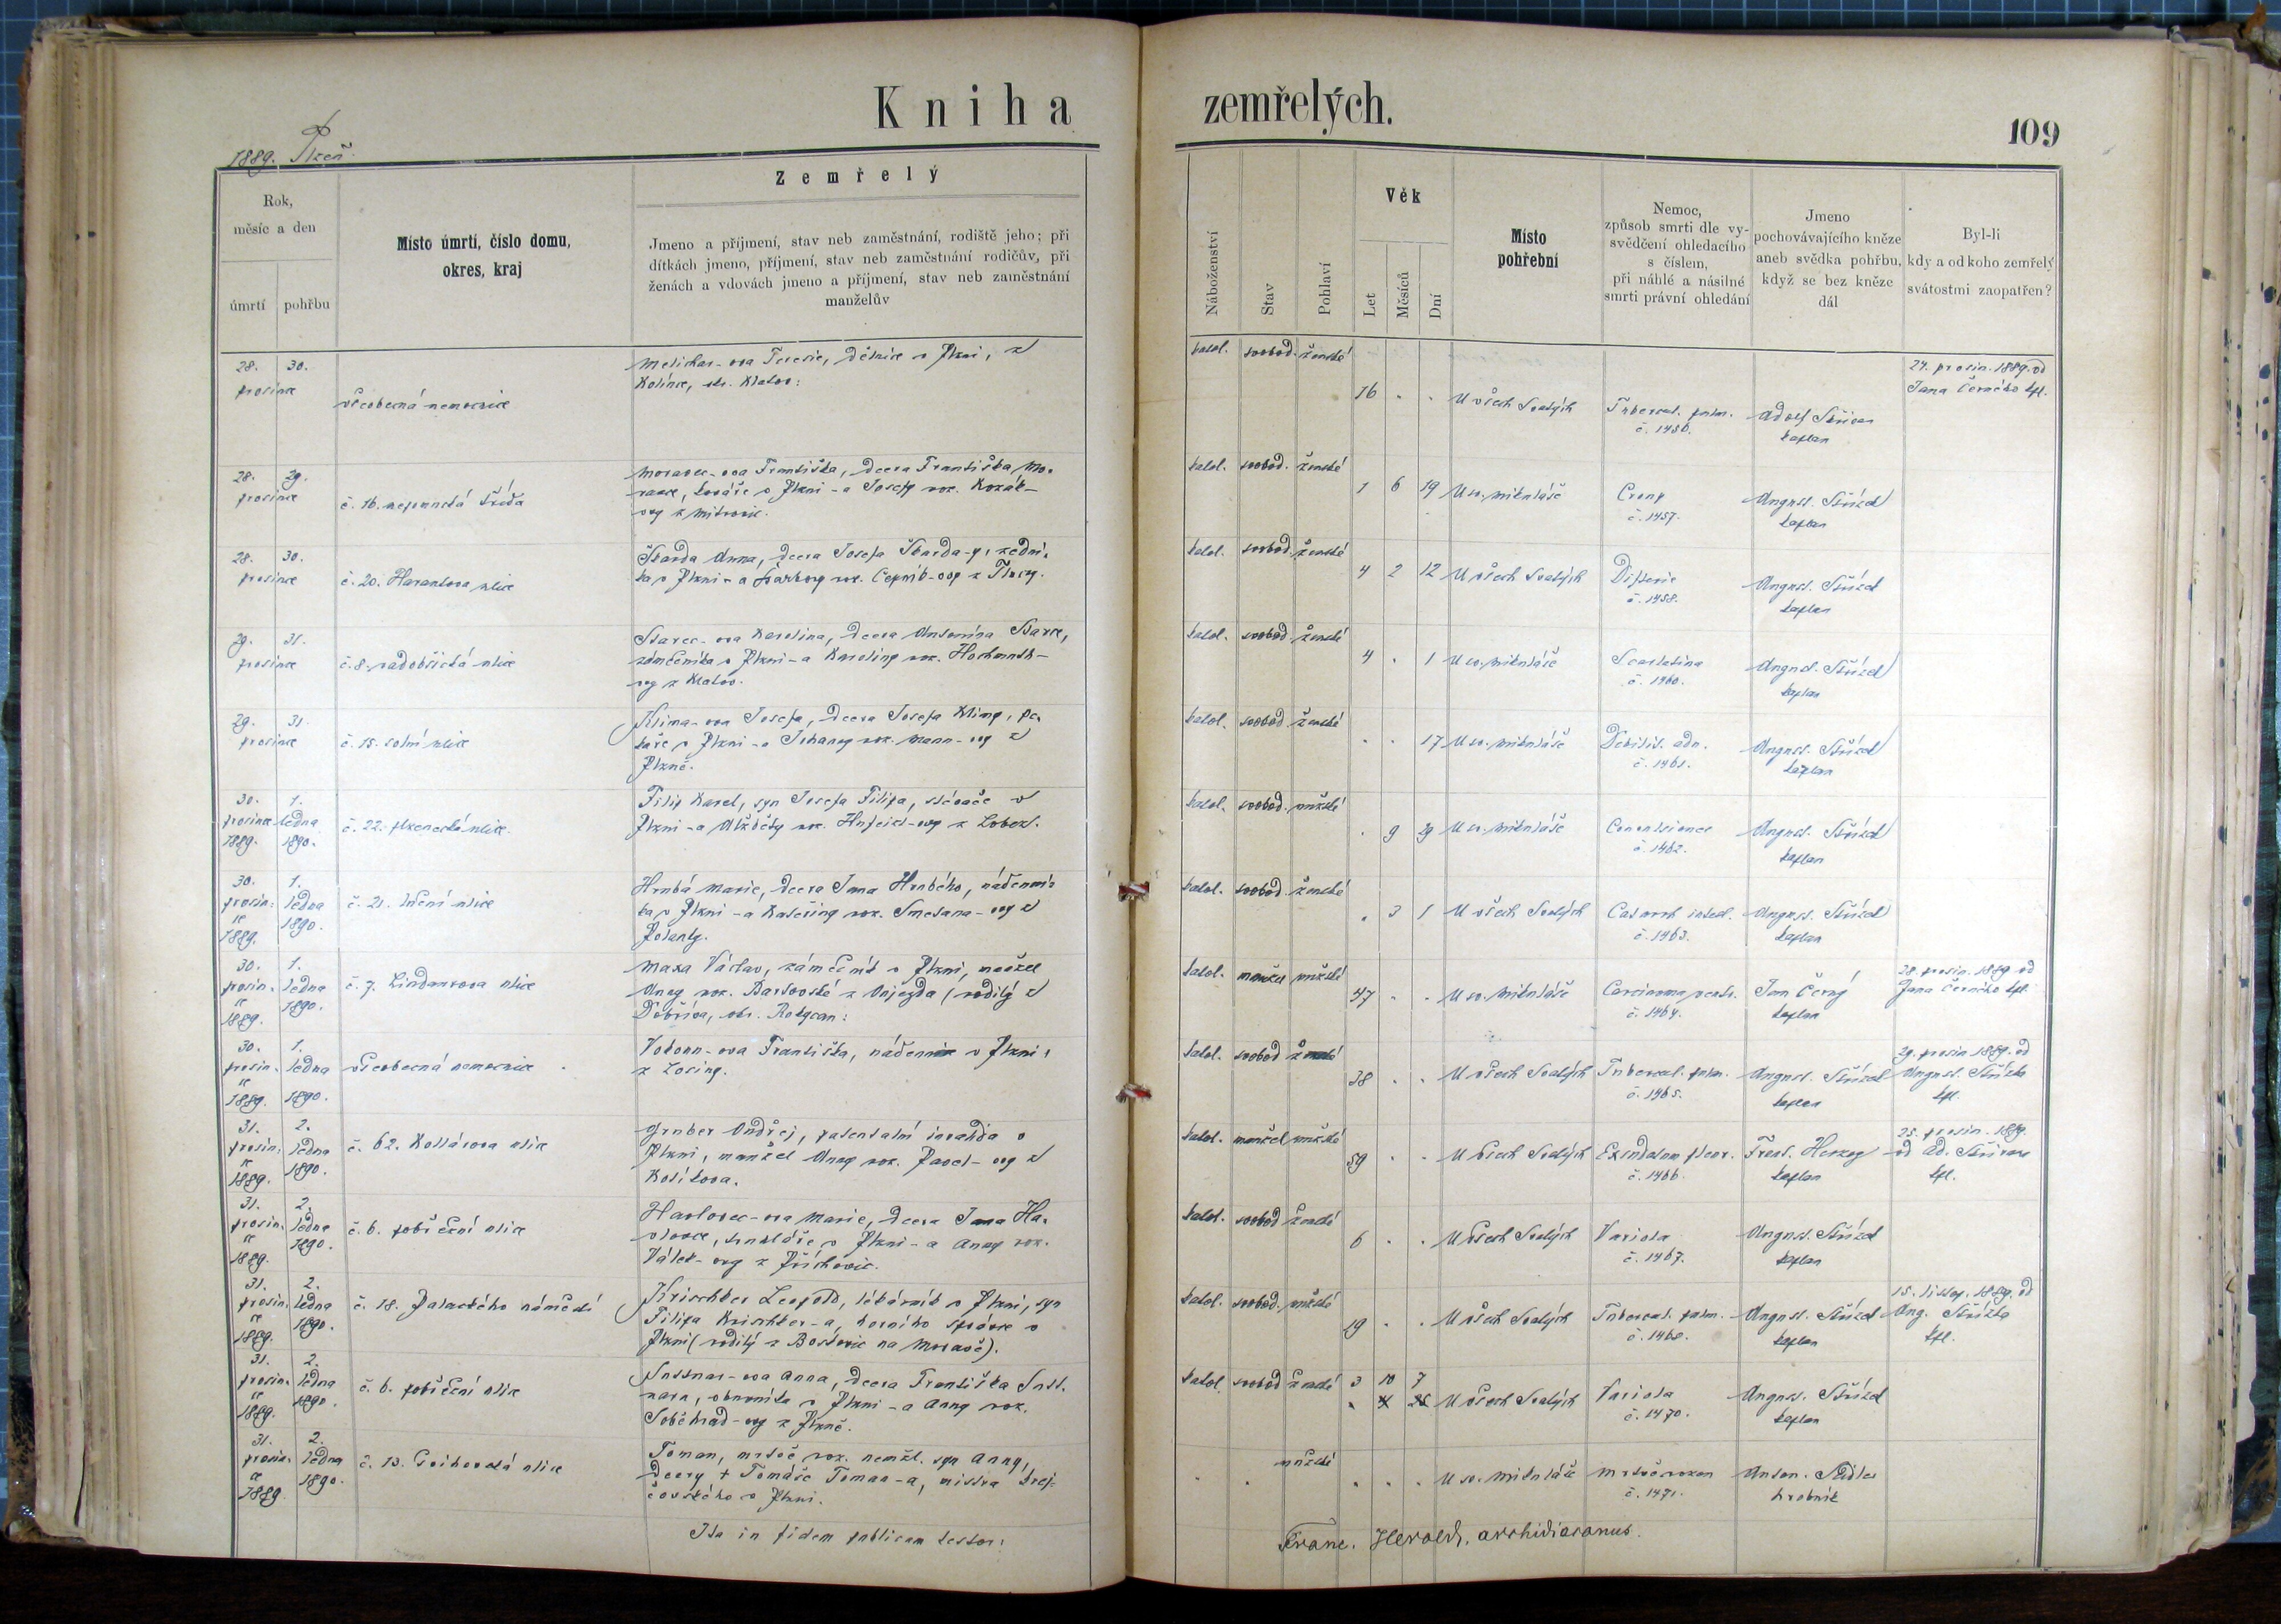 Kniha
zemřelých.
109
1889. Plzeň.
Rok,
měsíc a den
úmrtí
pohřbu
Místo úmrtí, číslo domu,
okres, kraj
Zemřelý
Jmeno a příjmení, stav neb zaměstnání, rodiště jeho; při
dítkách jmeno, příjmení, stav neb zaměstnání rodičův, při
ženách a vdovách jmeno a příjmení, stav neb zaměstnání
manželův
Náboženství
Stav
Pohlaví
Věk
Let
Měsíců
Dní
Místo
pohřební
Nemoc,
způsob smrti dle vy-
svědčení ohledacího
s číslem,
při náhlé a násilné
smrti právní ohledání
Jmeno
pochovávajícího kněze
aneb svědka pohřbu,
když se bez kněze
dál
Byl-li
kdy a od koho zemřelý
svátostmi zaopatřen?
28. 30.
prosince
všeobecná nemocnice
Melichar-ova Teresie, dělnice v Plzni, z
Kolínce, okr. Klatov:
katol. svobod. ženské
16 . . U všech Svatých
Tubercul. pulm.
č. 1456.
Adolf
kaplan
24. prosin. 1889. od
Jana Černého kpl.
28. 29.
prosince
č. 16. nepomucká třída
Moravec-ova Františka, dcera Františka Mo-
ravce, kováře v Plzni - a Josefy roz. Kozák-
ovy z Mitrovic.
katol. svobod. ženské
1 6 19 U sv. Mikuláše
Croup
č. 1457.
August. Střízek
kaplan
28. 30.
prosince
č. 20. Harantova ulice
Škarda Anna, dcera Josefa Škarda-y, zední-
ka v Plzni - a Barbory roz.
katol. svobod. ženské
4 2 12 U všech Svatých
Difterie
č. 1458.
August. Střízek
kaplan
29. 31.
prosince
č. 8. radobčická ulice
Starec-ova Karolina, dcera Antonína Starce,
zámečníka v Plzni - a Karoliny roz.
ovy z Klatov.
katol. svobod. ženské
4 . 1 U sv. Mikuláše
Scarlatina
č. 1460.
August. Střízek
kaplan
29. 31.
prosince
č. 15. solní ulice
Klima-ova Josefa, dcera Josefa Klimy, pe-
kaře v Plzni - a Johanny roz. Mann-ovy z
Plzně.
katol. svobod. ženské
. . 17 U sv. Mikuláše
Debilit. adn.
č. 1461.
August. Střízek
kaplan
30. 1.
prosince ledna
1889. 1890.
č. 22. plzenecká ulice.
Filip Karel, syn Josefa Filipa, slévače v
Plzni - a Alžběty roz.
katol. svobod. mužské
. 9 29 U sv. Mikuláše
Convulsiones
č. 1462.
August. Střízek
kaplan
30. 1.
prosin- ledna
ce 1890.
1889.
č. 21. luční ulice
Hrubá Marie, dcera Jana Hrubého, nádenní-
ka v Plzni - a Kateřiny roz. Smetana-ovy z
Polanky.
katol. svobod. ženské
. 3 1 U všech Svatých
Catarrh intest.
č. 1463.
August. Střízek
kaplan
30. 1.
prosin- ledna
ce 1890.
1889.
č. 7. Lindaurova ulice
Maxa Václav, zámečník v Plzni, manžel
Anny roz. Bartovské z Oujezda (rodilý z
Dobříva, okr. Rokycan:
katol. manžel mužské
47 . . U sv. Mikuláše
Carcinoma ventr.
č. 1464.
Jan Černý
kaplan
28. prosin. 1889 od
Jana Černého kpl.
30. 1.
prosin- ledna
ce
1889. 1890.
všeobecná nemocnice
Vokoun-ova Františka, nádennice v Plzni,
z Losiny.
katol. svobod ženské
38 . . U všech Svatých
Tubercul. pulm.
č. 1465.
August. Střízek
kaplan
29. prosin 1889. od
August. Střízka
kpl.
31. 2.
prosin- ledna
ce 1890.
1889.
č. 62. Kollárova ulice
Gruber Ondřej, patentalní invalida v
Plzni, manžel Anny roz. Pavel-ovy z
katol. manžel mužské
59 . . U všech Svatých
Exsudatum pleur.
č. 1466
Frant. Herzog
kaplan
25. prosin. 1889.
od Ad.
kpl.
31. 2.
prosin- ledna
ce 1890.
1889.
č. 6. pobřežní ulice
Havlovec-ova Marie, dcera Jana Ha-
vlovce, truhláře v Plzni - a Anny roz.
Válek-ovy z Příchovic.
katol. svobod ženské
6 . . U všech Svatých
Variola
č. 1467.
August. Střízek
kaplan
31. 2.
prosin- ledna
ce 1890.
1889.
č. 18. Palackého náměstí
Krischker Leopold, lékárník v Plzni, syn
Filipa Krischker-a, horního správce v
Plzni (rodilý z Boskovic na Moravě).
katol. svobod. mužské
19 . . U všech Svatých
Tubercul. pulm.
č. 1468.
August. Střízek
kaplan
15. listop. 1889. od
Aug. Střízka
kpl.
31. 2.
prosin- ledna
ce 1890.
1889.
č. 6. pobřežní ulice
Sussnar-ova Anna, dcera Františka Suss-
nara, obuvníka v Plzni - a Anny roz.
Soběhrad-ovy z Plzně.
katol. svobod ženské
3 10 7
U všech Svatých
Variola
č. 1470.
August. Střízek
kaplan
31. 2.
prosin- ledna
ce 1890.
1889
č. 13. Cvihovská ulice
Toman, mrtvě roz. nemžl. syn Anny,
dcery + Tomáše Toman-a, mistra krej-
čovského v Plzni.
mužské
U sv. Mikuláše
mrtvě rozen
č. 1471.
Anton. Sádlo
hrobník
Ita in fidem publicam testor:
Franc. Herold, archidiaconus.